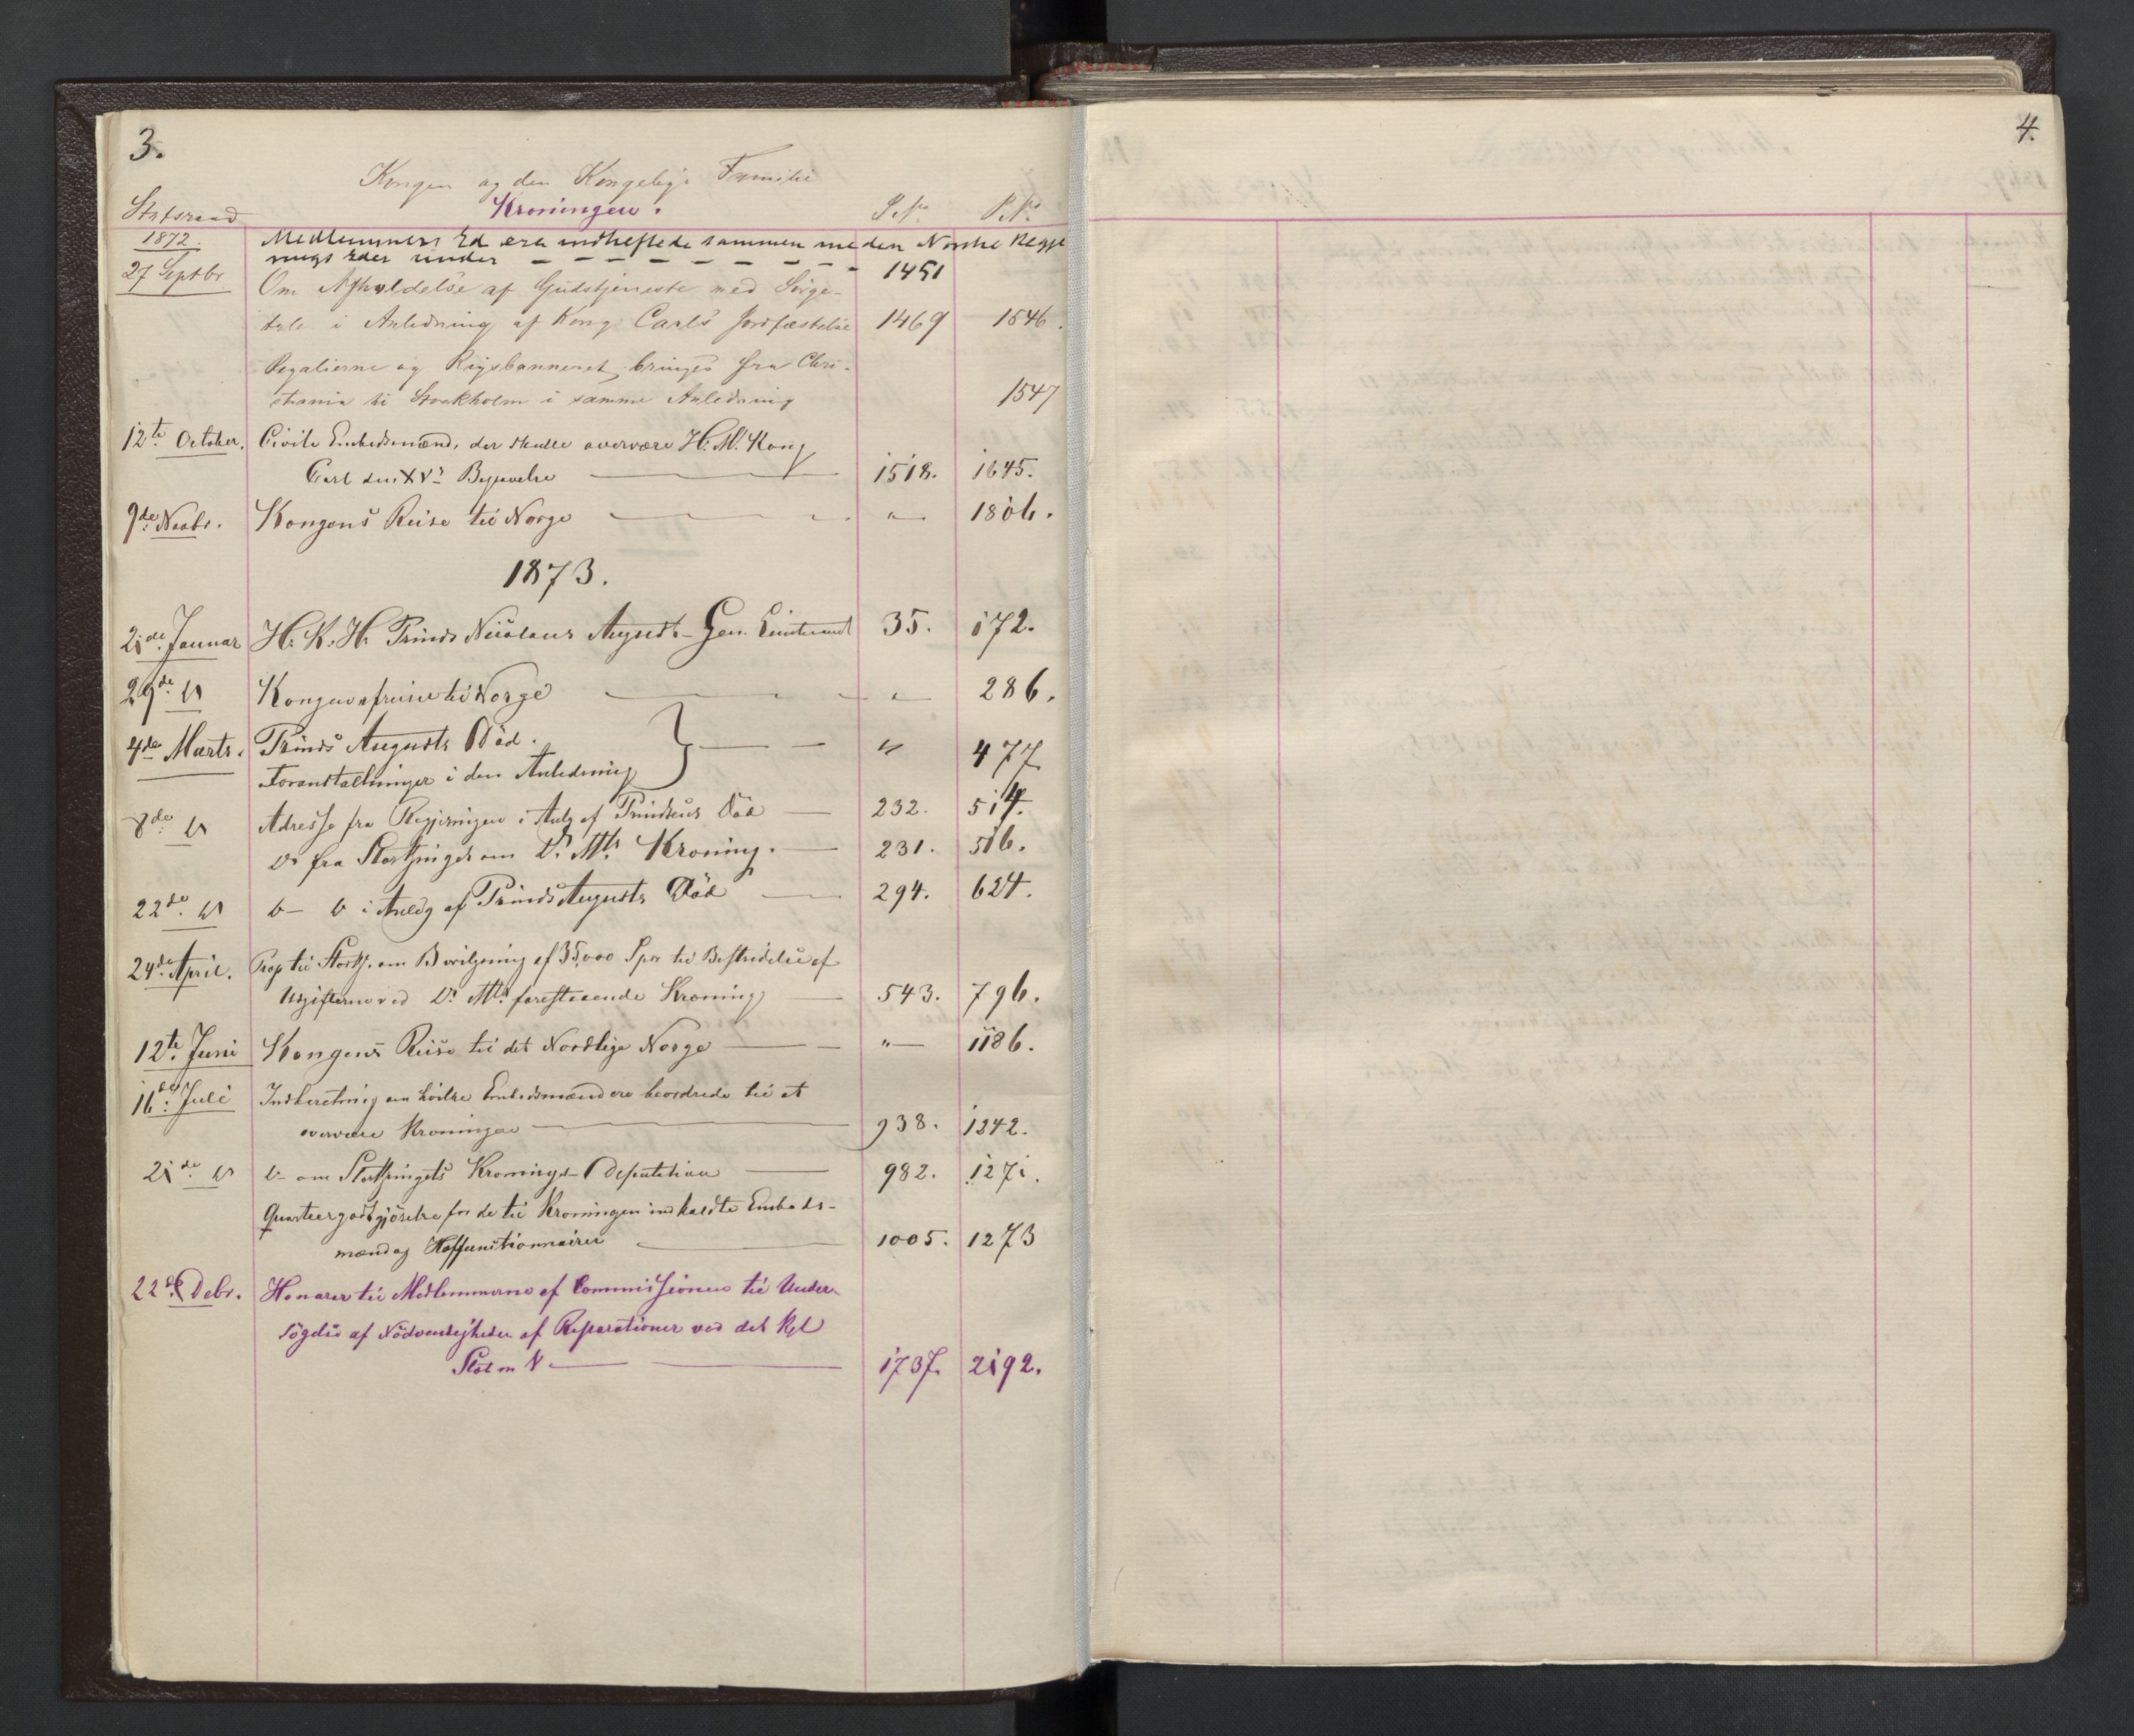 3.
Kongen og den Kongelige Familie
Kroningen.
Statsraad S.No. P.No.
1872. Medlemmers Ed ere indheftede sammen med den Norske Regje
rings Eder under - - - - - - - - 1451
27 Septbr Om Afholdelse af Gudstjeneste med Sørge-
tale i Anledning af Kong Carls Jordfæstelse 1469 1546.
Regalierne og Rigsbanneret bringes fra Chri-
stiania til Stockholm i samme Anledning 1547
12te October. Civile Embedsmænd, der skulle overvære H. M. Kong
Carl den XVs Begravelse 1518. 1645.
9de Novbr. Kongens Reise til Norge " 1806.
1873.
21de Januar H. K. H. Prinds Nicolaus August - Gen. Lieutenant 35. 172.
29de " Kongens afreise til Norge " 286.
4de Marts. Prinds Augusts Död.
Foranstaltninger i den Anledning } " 477
8de " Adresse fra Regjeringen i Anlg af Prindsens Död 232. 514.
Do fra Storthinget om Ds Mts Kroning. 231. 516.
22de " D- D i Anledg af Prinds Augusts Död 294. 624.
24de April. Prop til Storth. om Bevilgning af 35,000 Spd til Bestridelse af
Udgifterne ved Ds Mts forestaaende Kroning 543. 796.
12te Juni Kongens Reise til det Nordlige Norge " 1186.
16de Juli Indberetning om hvilke Embedsmænd ere beordrede til at
overvære Kroningen 938. 1242.
21de " D- om Storthingets Kronings-Deputation 982. 1271.
Quarteergodtgjörelse for de til Kroningen indkaldte Embeds-
mænd og Hoffunctionnairer 1005. 1273
22de Debr. Honorar til Medlemmerne af Commissionen til Under-
sögelse af Nödvendigheden af Reparationer ved det Kgl
Slot m V 1737. 2192.
4.